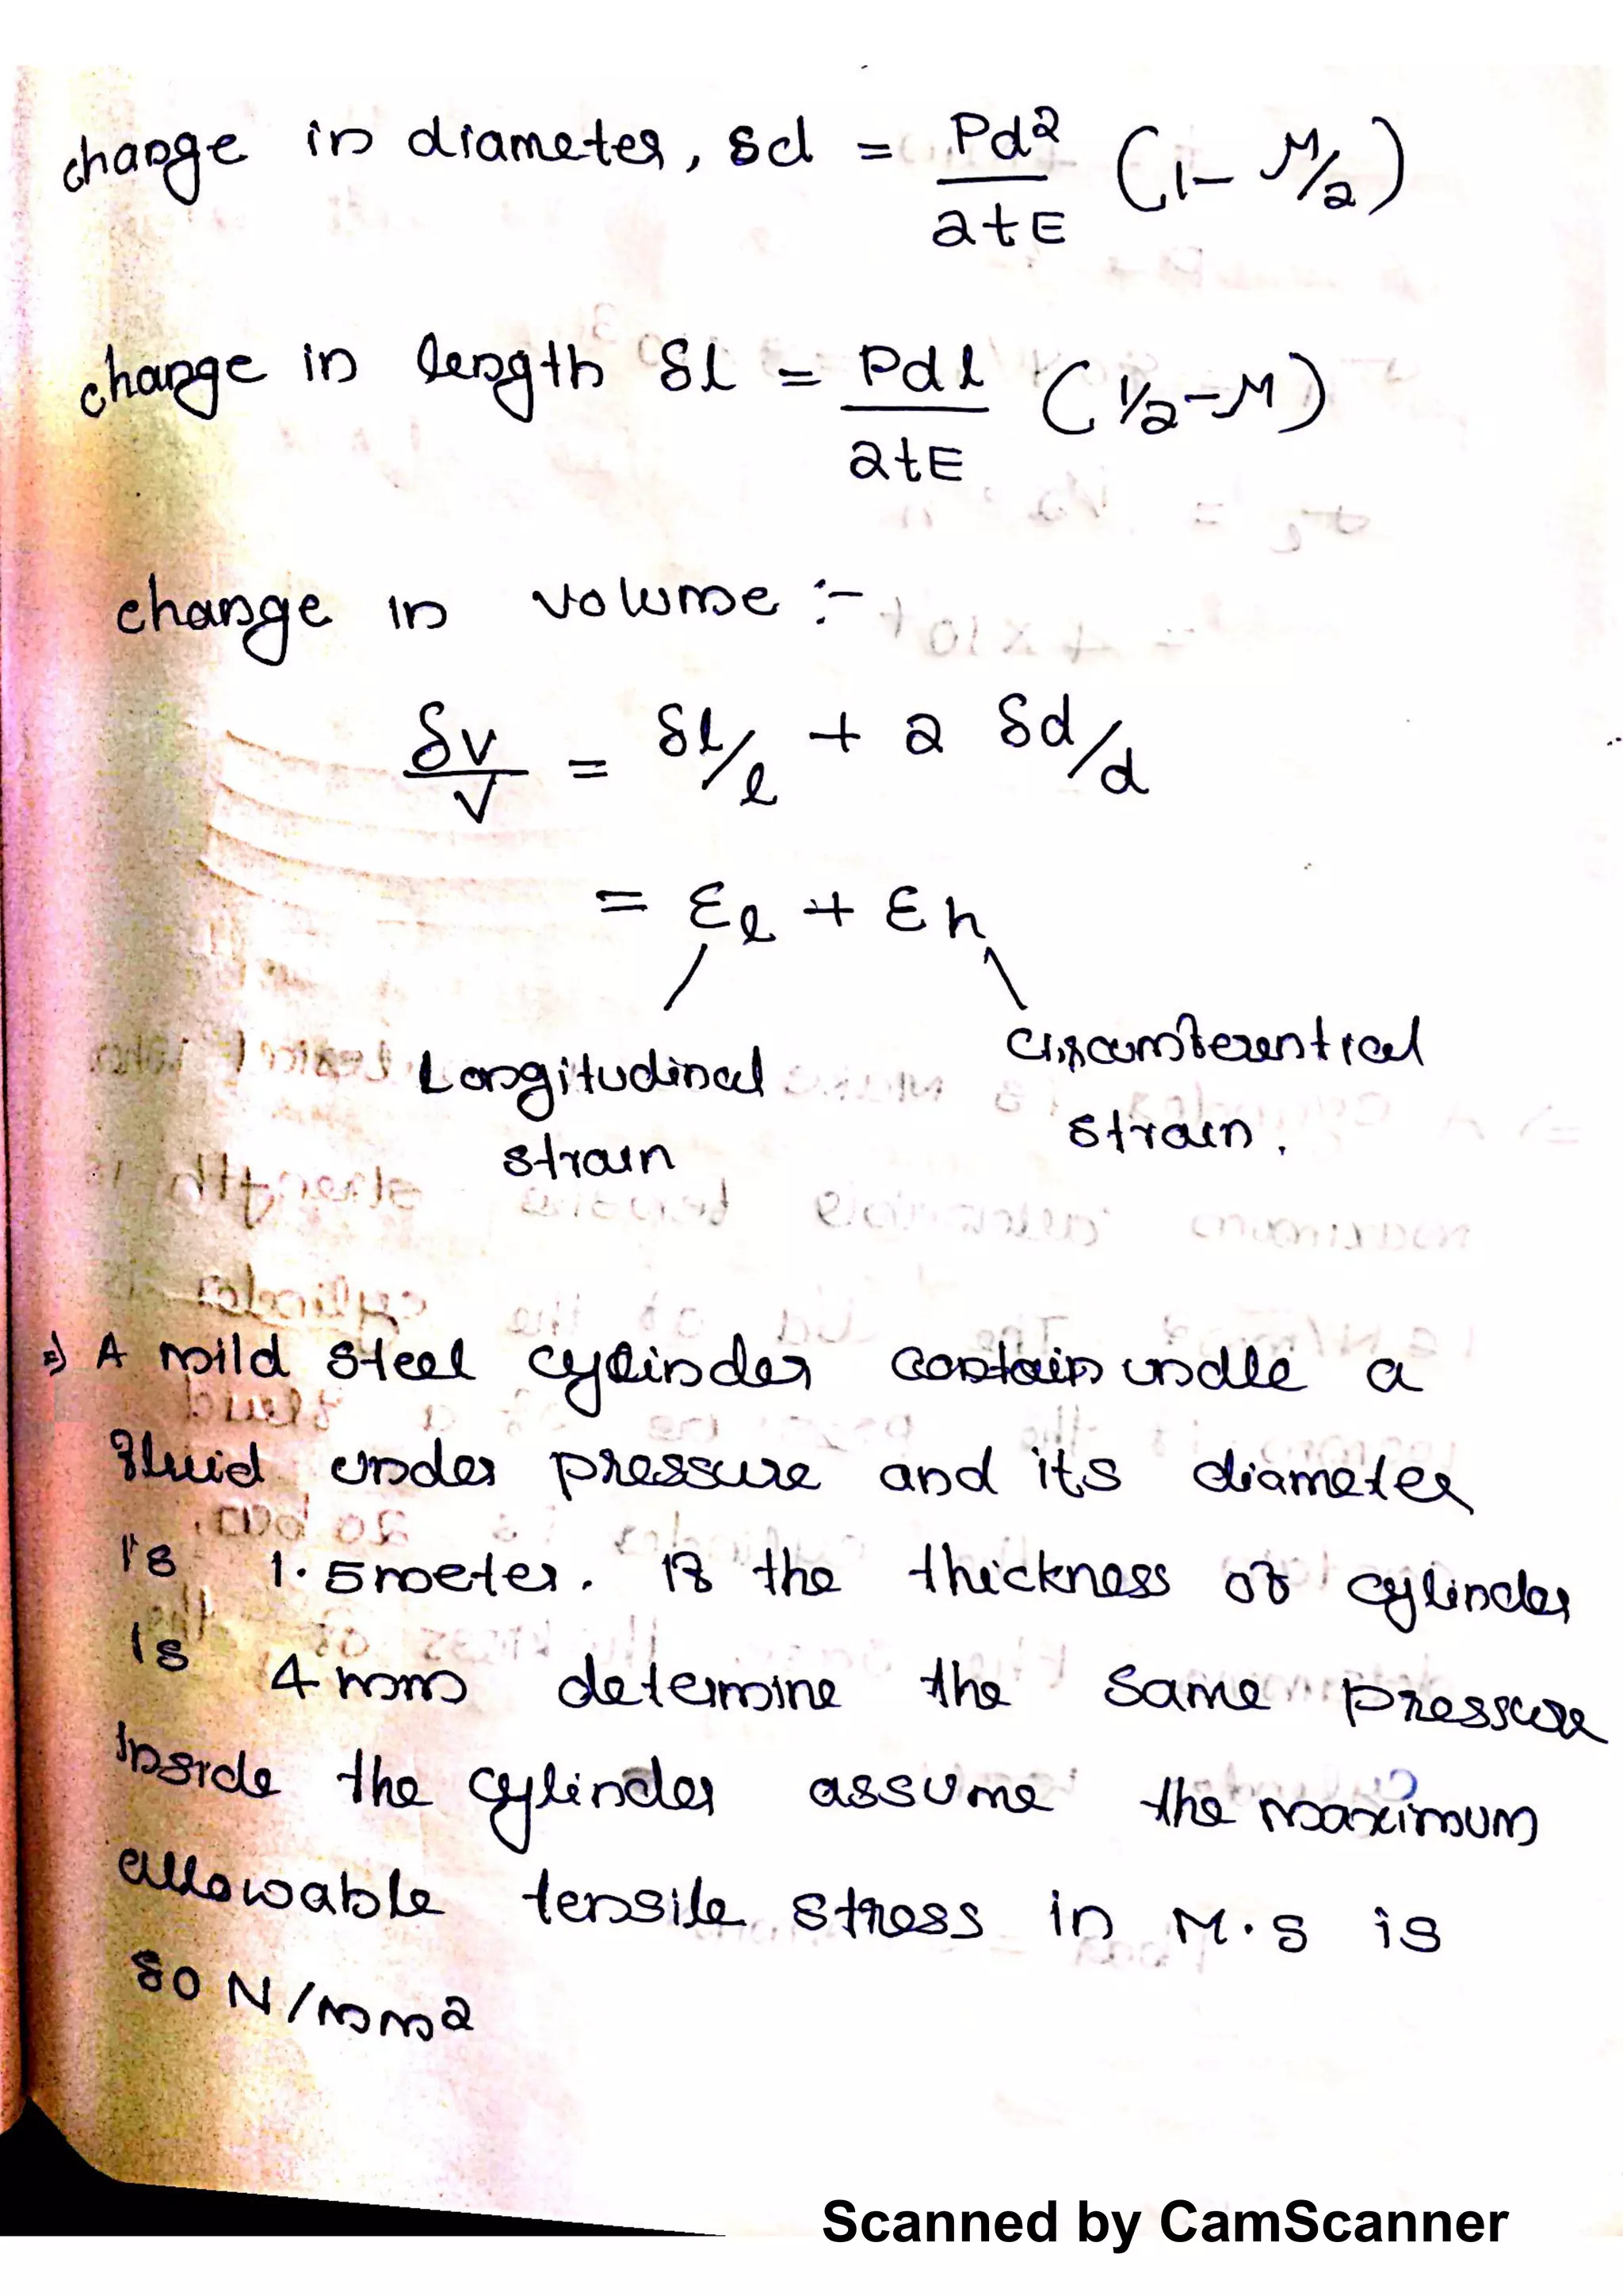 change in diameter, δd = Pd²/2tE (1 - μ/2)
change in length δl = Pdl/2tE (1/2 - μ)
change in volume :-
δV/V = δl/l + 2 δd/d
= εl + εh
Longitudinal strain
Circumferential strain.
⇒) A mild steel cylinder contain undle a
fluid under pressure and its diameter
is 1.5 meter. If the thickness of cylinder
is 4 mm determine the same pressure
inside the cylinder assume the maximum
allowable tensile stress in M.S is
80 N/mm2
Scanned by CamScanner